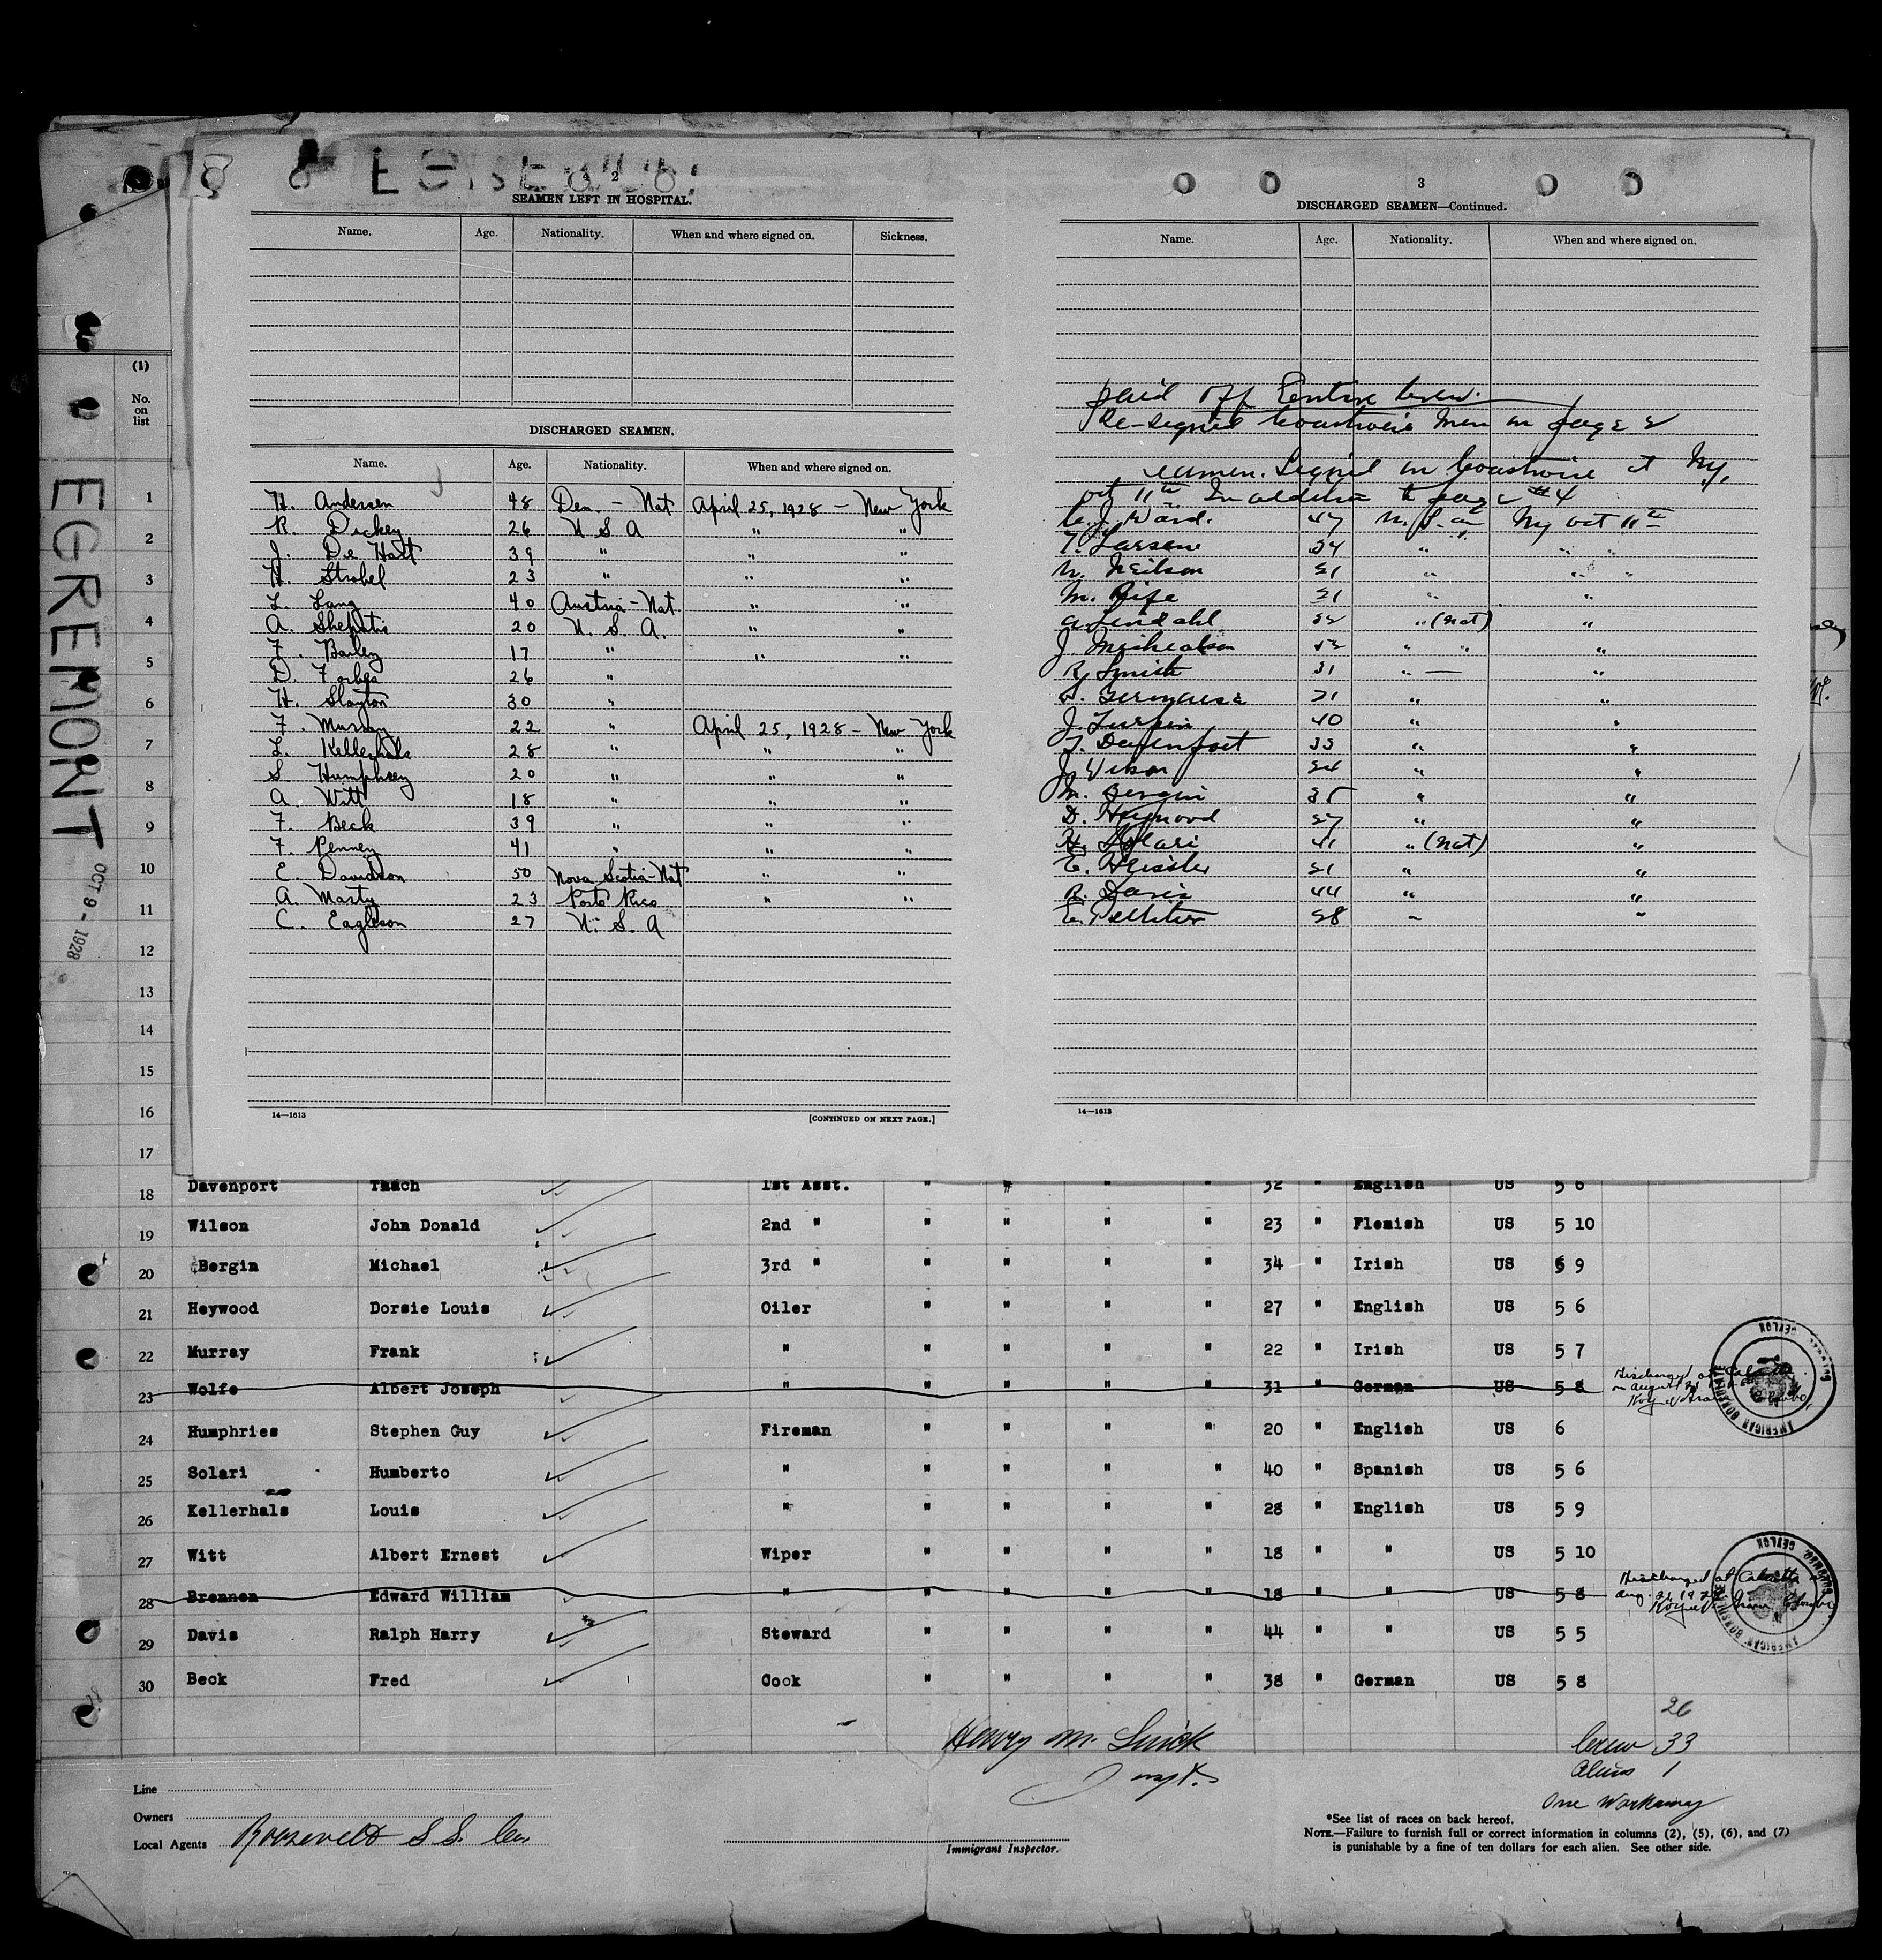 2
SEAMEN LEFT IN HOSPITAL.
Name. Age. Nationality. When and where signed on. Sickness.
DISCHARGED SEAMEN.
Name. Age. Nationality. When and where signed on.
H. Andersen 48 Den. - Nat April 25, 1928 - New York
R. Dickey 26 U S A " "
J. De Hart 39 " " "
H. Strobel 23 " " "
L. Lang 40 Austria - Nat. " "
A. Shepstis 20 U. S. A. " "
F. Bailey 17 " " "
D. Forbes 26 "
H. Slayton 30 "
F. Murray 22 " April 25, 1928 - New York
L. Kellerhals 28 " " "
S Humphrey 20 " " "
A. Witt 18 " " "
F. Beck 39 " " "
F. Penney 41 " " "
E. Davidson 50 Nova Scotia-Nat " "
A. Marty 23 Porto Rico " "
C. Eagleson 27 U. S. A
14—1613 [CONTINUED ON NEXT PAGE.]
3
DISCHARGED SEAMEN—Continued.
Name. Age. Nationality. When and where signed on.
paid off Entire Crew.
Re-signed Coastwise Men on page 2
Signed on Coastwise at Ny.
oct 11th In addition to page #4
C. J. Ward. 47 U. S. a Ny oct 11th
T. Larsen 34 " " "
N. Neilson 21 " " "
M. Rife 21 " "
a. Lindahl 32 " (nat) "
J Michealson 52 " " "
R. Smith 31 " — "
21 " "
J. 40 " "
T. Davenport 33 " "
J. Wilson 24 " "
M. Bergin 35 " "
D. Haywood 27 " "
H. Solari 41 " (nat) "
E. Heissler 21 " "
R. Davis 44 " "
E. Pelletier 28 " "
14—1613
(1)
No.
on
list
EGREMONT
OCT 9 - 1928
1
2
3
4
5
6
7
8
9
10
11
12
13
14
15
16
17
18 Davenport Thach 1st Asst. " " " " 32 " English US 5 6
19 Wilson John Donald 2nd " " " " " 23 " Flemish US 5 10
20 Bergin Michael 3rd " " " " " 34 " Irish US 5 9
21 Heywood Dorsie Louis Oiler " " " " 27 " English US 5 6
22 Murray Frank " " " " " 22 " Irish US 5 7
23 Wolfe Albert Joseph " " " " " 31 " German US 5 8
Discharged at Calcutta
on August
24 Humphries Stephen Guy Fireman " " " " 20 " English US 6
25 Solari Humberto " " " " " 40 " Spanish US 5 6
26 Kellerhals Louis " " " " " 28 " English US 5 9
27 Witt Albert Ernest Wiper " " " " 18 " " US 5 10
28 Brennen Edward William " " " " " 18 " " US 5 8
Discharged at Calcutta
Aug. 21, 1928
29 Davis Ralph Harry Steward " " " " 44 " " US 5 5
30 Beck Fred Cook " " " " 38 " German US 5 8
AMERICAN CONSULATE
CEYLON
AMERICAN CONSULATE
CEYLON
26
Crew 33
Aliens 1
One Workaway
Henry M.
Line
Owners
Local Agents Roosevelt S S. Co.
Immigrant Inspector.
*See list of races on back hereof.
NOTE.—Failure to furnish full or correct information in columns (2), (5), (6), and (7)
is punishable by a fine of ten dollars for each alien. See other side.